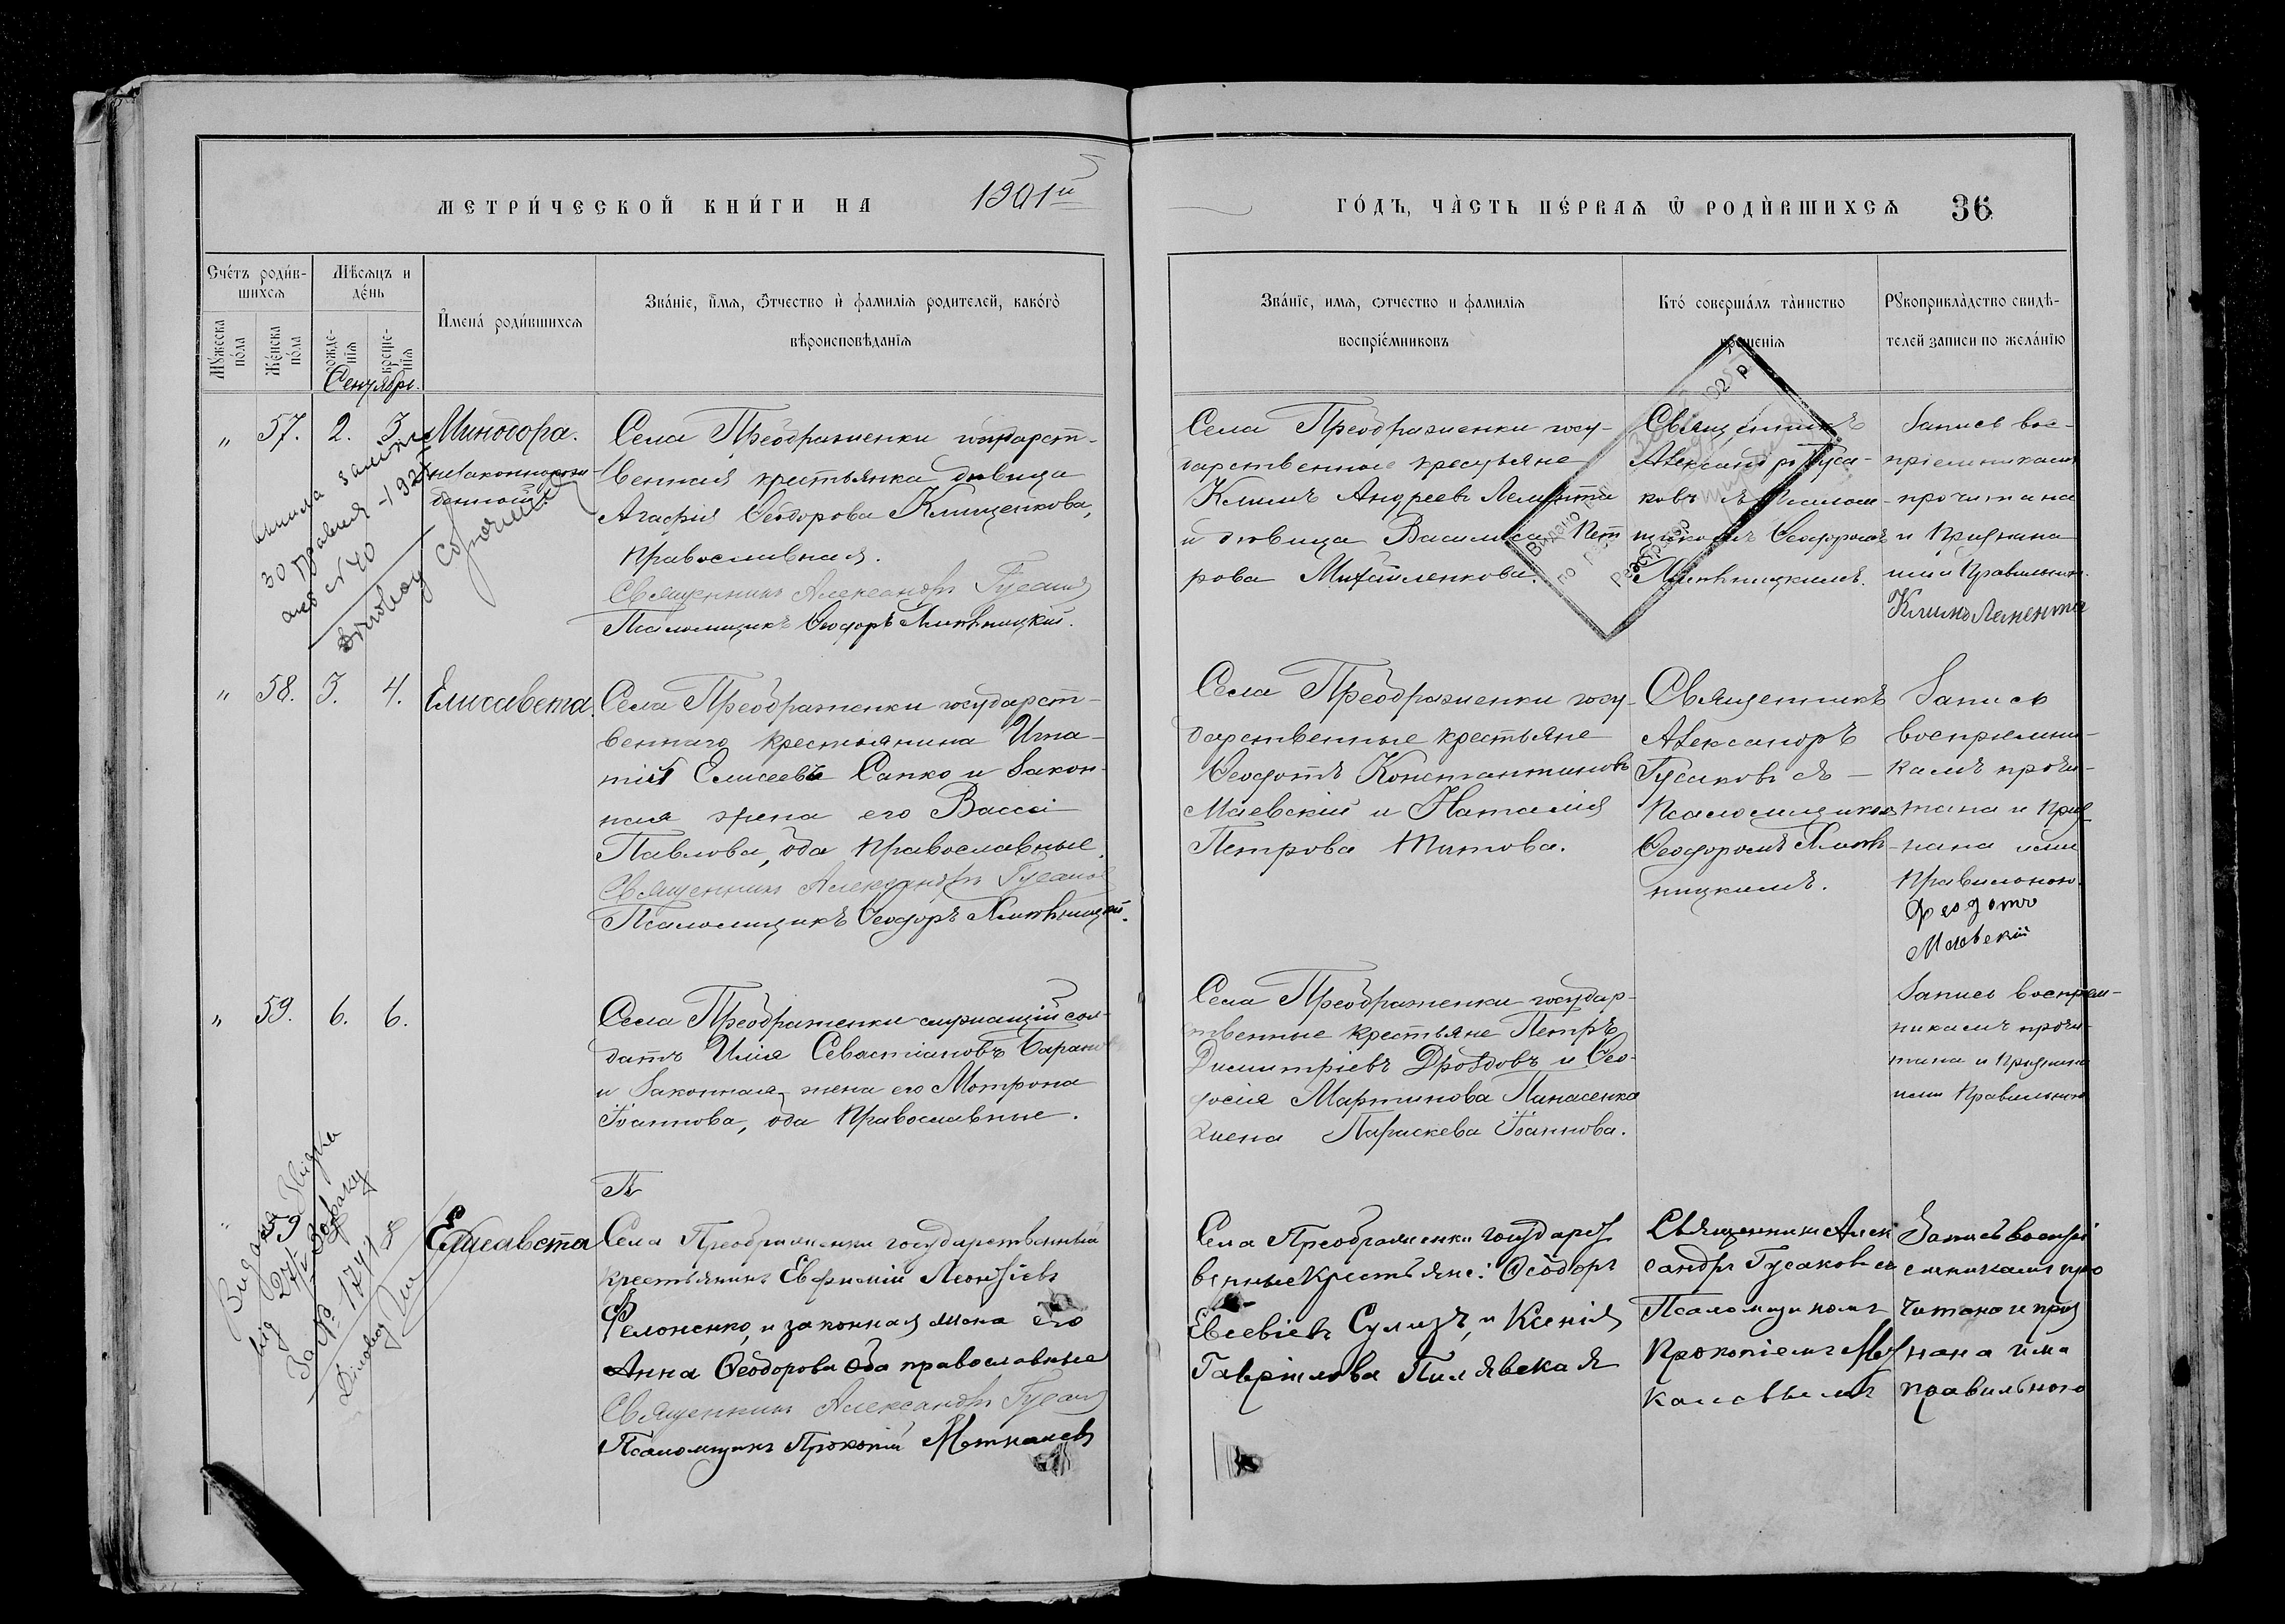 МЕТРИ́ЧЕСКОЙ КНИ́ГИ НА 1901й
ГО́ДЪ, ЧА́СТЬ ПЕ́РВАѦ Ѿ РОДИ́ВШИХСѦ 36
Сче́тъ роди́в-
шихсѧ
Мꙋ́жеска
по́ла
Же́нска
по́ла
Мѣ́сѧцъ и
де́нь
рожде-
нїѧ
креще-
нїѧ
Имена́ роди́вшихсѧ
Зва́нїе, и́мѧ, ѻ҆́тчество и҆ фамилїѧ родителей, како́го
вѣроисповѣданїѧ
Зва́нїе, имѧ, ѻтчество и фамилїѧ
воспрїе́мниковъ
Кто́ соверша́лъ та́инство
крещенїѧ
Рꙋкоприкла́дство свидѣ-
телей записи по жела́нїю
Сентябрь.
" 57. 2. 3. Минодора.
незаконнорож-
денной
Села Преображенки государст-
венная крестьянка девица
Агафия Ѳеодорова Клищенкова,
православная.
Священникъ Александръ Гусаковъ
Псаломщикъ Ѳеодоръ
Села Преображенки госу-
дарственные крестьяне
Климъ Андреевъ Лемента
и девица Василиса Пет
рова Михайленкова.
Священникъ
Александръ Гуса-
ковъ съ Псалом-
щикомъ Ѳеодоромъ
Запись вос-
пріемникамъ
прочитана
и признана
ими правильною.
Климъ Лемента
30 травня 1925
№ 40
" 58. 3. 4. Елисавета.
Села Преображенки государст-
веннаго крестьянина Игна-
тій Елисеевъ Сапко и закон-
ная жена его Васса
Павлова, оба православные.
Священникъ Александръ Гусаковъ
Псаломщикъ Ѳеодоръ
Села Преображенки госу-
дарственные крестьяне
Ѳеодотъ Константиновъ
Маевский и Наталия
Петрова Титова.
Священникъ
Александръ
Гусаковъ съ
Псаломщикомъ
Ѳеодоромъ
ницкимъ.
Запись
воспріемни-
камъ прочи-
тана и приз-
нана ими
правильною.
Федотъ
Маевский
" 59. 6. 6.
Села Преображенки служащій сол-
датъ Илія Севастіановъ Баранов
и законная жена его Мотрона
Іоаннова, оба православные.
П
Села Преображенки государ-
ственные крестьяне Петръ
Димитріевъ Дроздовъ и Ѳео-
досия Мартинова Панасенко
жена Параскева Іоаннова.
Запись воспріем-
никамъ прочи-
тана и признана
ими правильною
" 59 8 Елисавета
Села Преображенки государственный
крестьянинъ Евфимій Леонтіевъ
Фелоненко, и законная жена его
Анна Ѳеодорова оба православные
Священникъ Александръ Гусаковъ
Псаломщикъ Прокопій
Села Преображенки государст
венные крестьяне: Ѳеодоръ
Евсевіевъ Сулизъ, и Ксенія
Гавріилова Пилявская
Священникъ Алек
сандръ Гусаковъ съ
Псаломщикомъ
Прокопіемъ
Запись воспрі
емникамъ про
читана и приз
нана ими
правильного
Видана
від 27/
За № 1741
Діловод